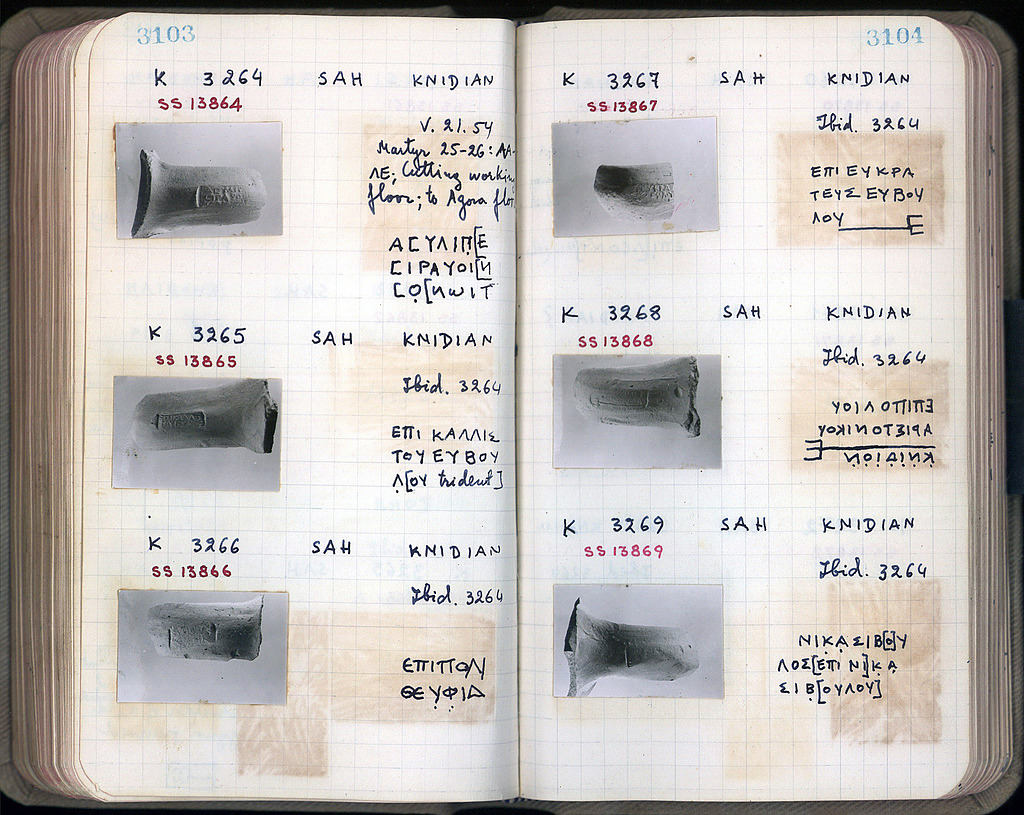 3103
K 3264 SAH KNIDIAN
SS 13864
V. 21. 54
Martyr 25-26: ΛΑ-
ΛΕ; Cutting working
floor; to Agora
ΑϹΥΛΙΠ[Ε
ϹΙΡΑΥΟΙ[И
ϹΟ[ИωΙΤ
K 3265 SAH KNIDIAN
SS 13865
Ibid. 3264
ΕΠΙ ΚΑΛΛΙΣ
ΤΟΥ ΕΥΒΟΥ
Λ[ΟΥ trident]
K 3266 SAH KNIDIAN
SS 13866
Ibid. 3264
ΕΠΙΠΟΛ
ΘΕΥΦΙΔ
3104
K 3267 SAH KNIDIAN
SS 13867
Ibid. 3264
ΕΠΙ ΕΥΚΡΑ
ΤΕΥΣ ΕΥΒΟΥ
ΛΟΥ
K 3268 SAH KNIDIAN
SS 13868
Ibid. 3264
ΕΠΙΠΟΛΙΟΥ
ΑΡΙΣΤΟΝΙΚΟΥ
ΚΝΙΔΙΟΝ
K 3269 SAH KNIDIAN
SS 13869
Ibid. 3264
ΝΙΚΑΣΙΒ[Ο]Υ
ΛΟΣ[ΕΠΙ Ν]ΙΚΑ
ΣΙΒ[ΟΥΛΟΥ]